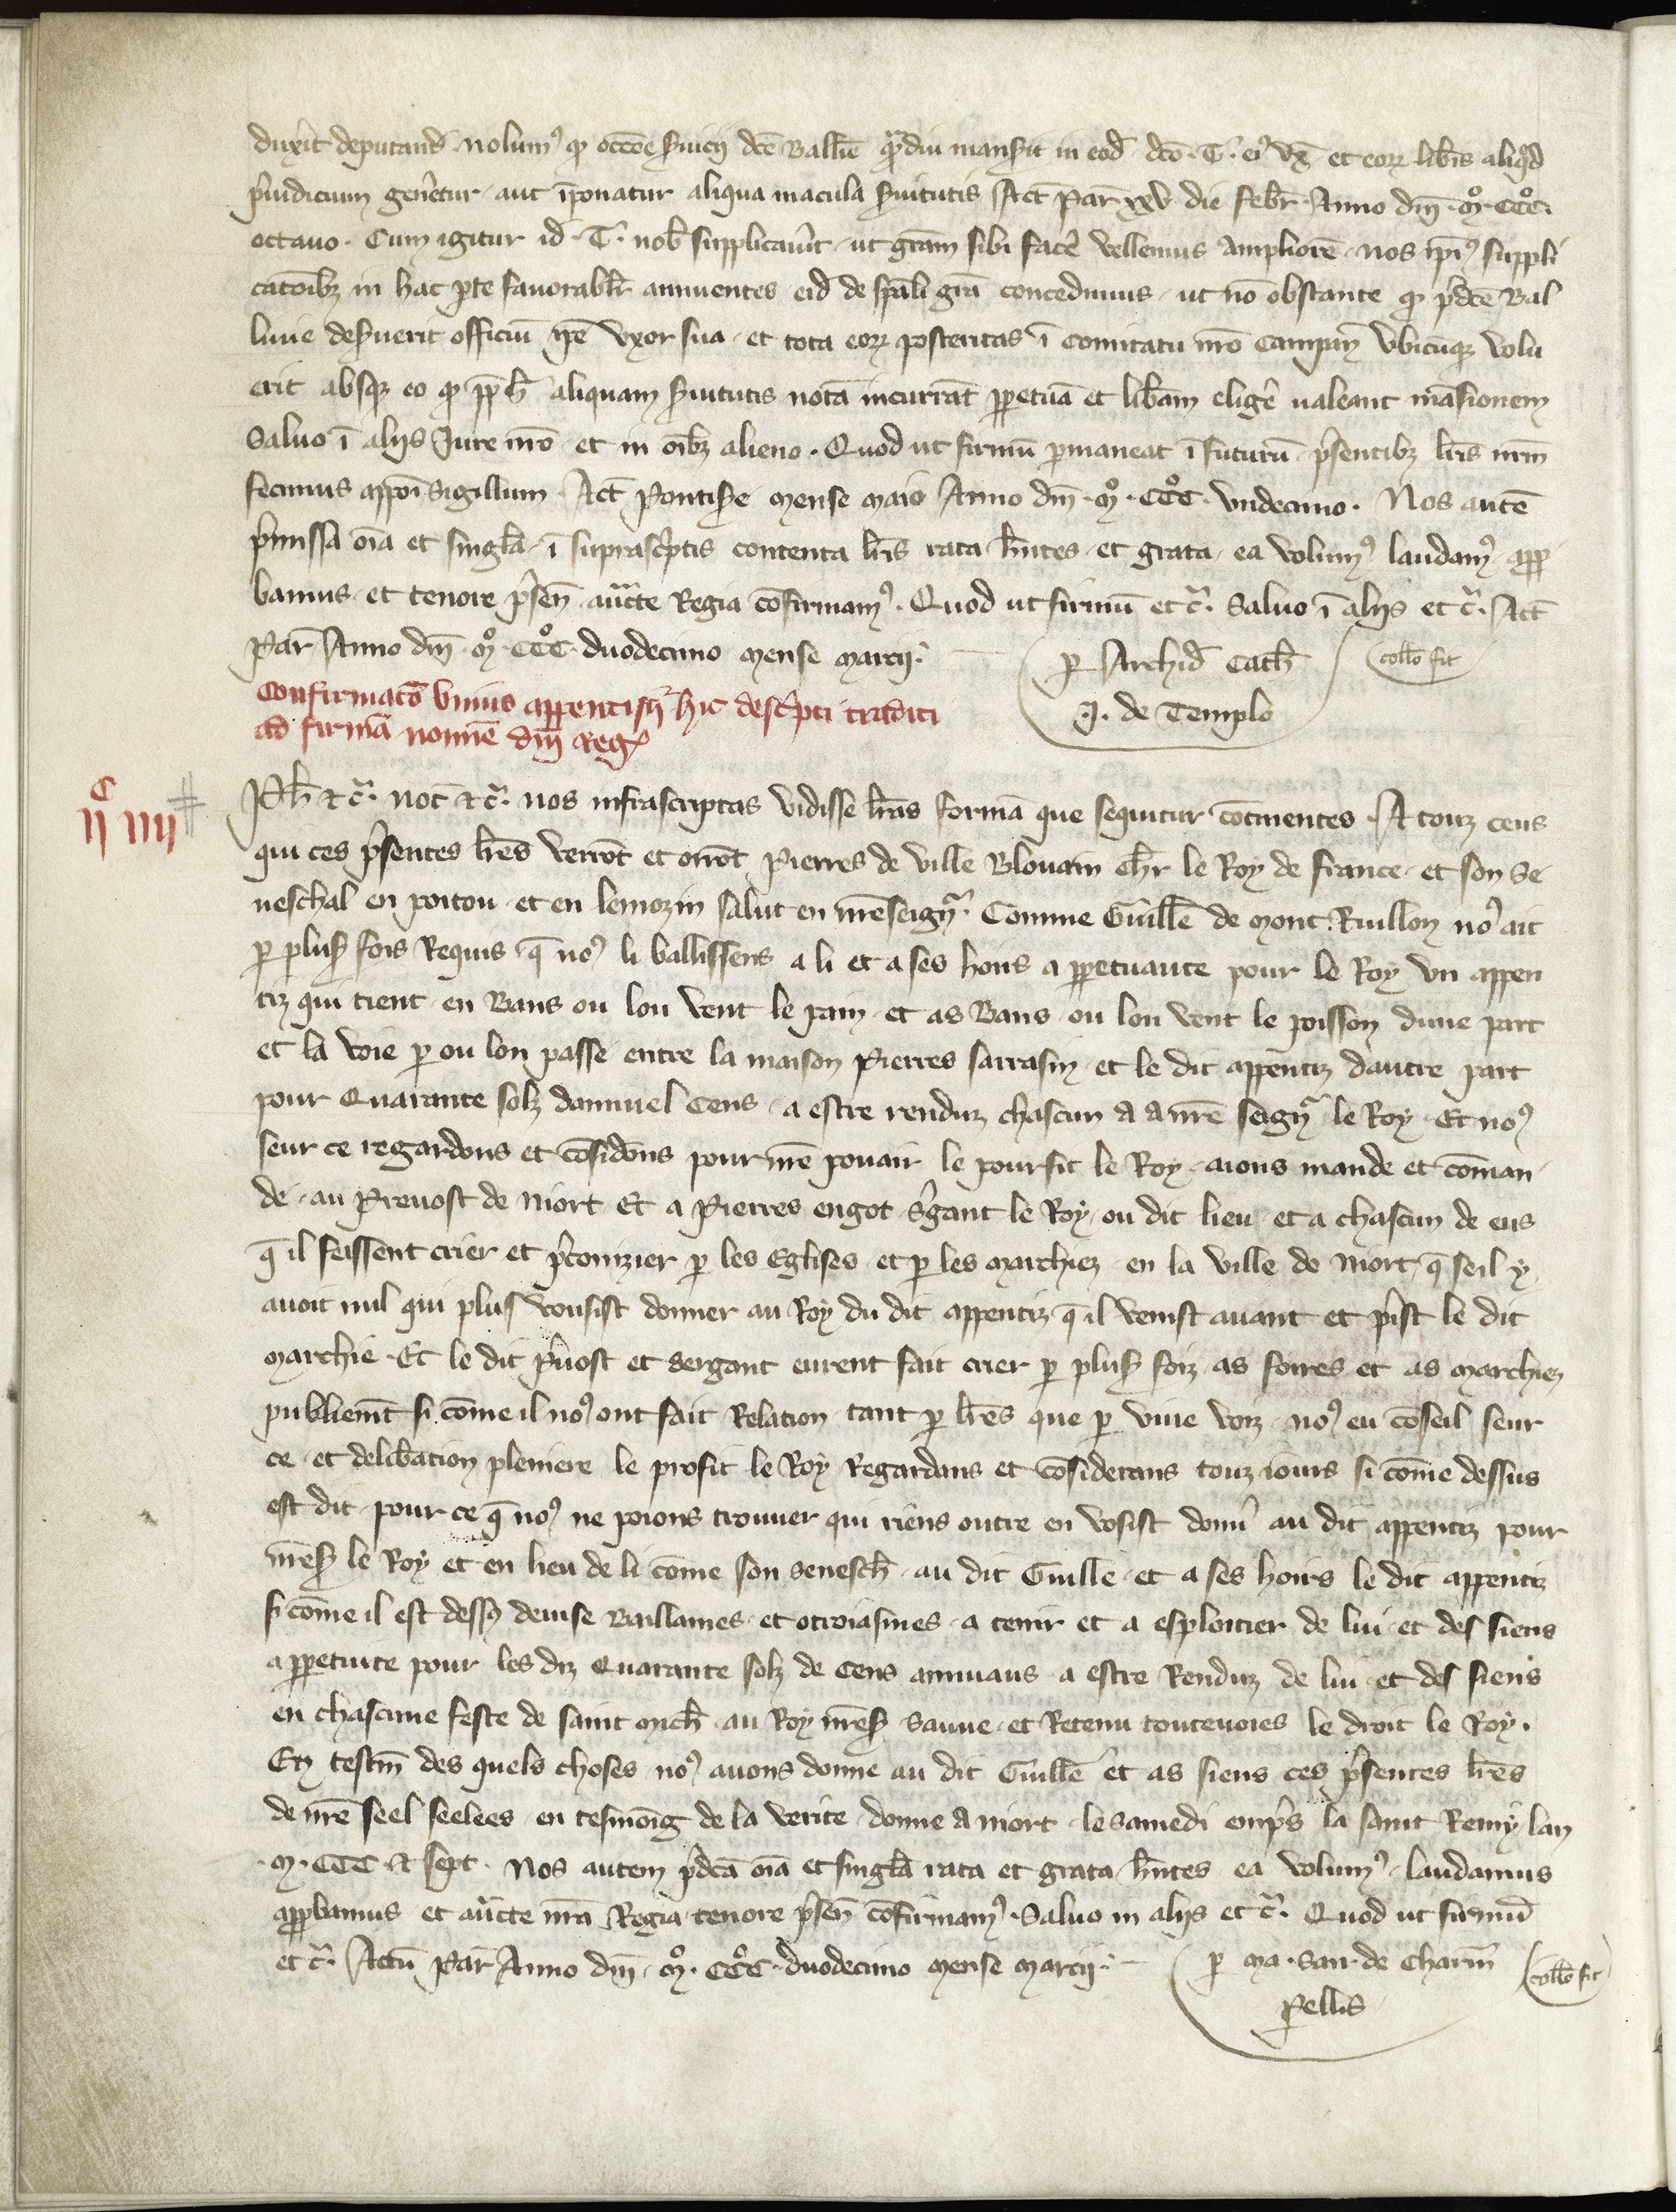 duxit deputand. nolumꝰ ꝙ occōe ẜuicij dc̄e Ballīe qͣdiu mansit in eod dc̄o .T. eiꝰ vx̄ et eoꝝ lib̄is aliqͥd
p̄iudicium gen̄etur aut īponatur aliqua macula ẜuitutis Act̄ Par̄ xxv die febr̄ Anno dn̄i .mͦ. CCͦC.
octauo. Cum igitur id .T. nob̄ supplicau̾it ut gr̄am sibi fac̾e vellemus ampliorē nos ip̄iꝰ suppli
catōibꝫ in hac ꝑte fauorabl̄r annuentes eid de sp̄ali gr̄a concedimus ut nō obstante ꝙ p̄dc̄e Bal
liuie deẜuerit officiū ip̄e vxor sua et tota eoꝝ posteritas ī comitatu nr̄o Campan̄ vbicūqꝫ volu
erit absqꝫ eo ꝙ ꝓpt̄ h̄ aliquam ẜuitutis notā incurrāt ꝑpetuā et lib̄am elig̾e ualeant māsionem
Saluo ī alijs Iure nr̄o et in oībꝫ alieno. Quod ut firmū ꝑmaneat ī futurū p̄sentibꝫ lr̄is nr̄m
fecimus appōi sigillum. Act̄ Pontis̄e mense maio Anno dn̄i .mͦ. CCͦC. vndecimo. Nos autē
p̄missa oīa et singl̄a ī suprasc̾ptis contenta lr̄is rata hn̄tes et grata ea volumꝰ laudamꝰ app̄
bamus et tenore p̄sen̄ auc̄te Regia cōfirmamꝰ. Quod ut firmū etc̄. Saluo ī alijs etc̄. Act̄
Par̄ Anno dn̄i .mͦ. CCͦC. duodecimo mense marcij. ꝑ Archid Cath̄ collō fit
.J. de Templo
Confirmatō vnius appenticij hic desc̾pti traditi
ad firmā nomīe dn̄i Regꝭ
ijͨ iiij
Ph̄ etc̄. Not̄ etc̄. nos infrascriptas vidisse lr̄as formā que sequitur cōtinentes. A touz ceus
qui ces p̄sentes lr̄es verrōt et orrōt Pierres de Ville Blouain ch̄r le Roy de france et son se
neschal en poitou et en lemozin salut en nr̄e seignͬ. Comme Guill̄e de mont Ruillon noꝰ ait
ꝑ plusꝭ fois Requis q̄ noꝰ li ballissens a li et a ses hoirs a ꝑpetuaute pour le Roy vn appen
tiz qui tient en Bans ou lon vent le pain et as Bans ou lon vent le poisson dune part
et la voie ꝑ ou lon passe entre la maison Pierres sarrasin et le dit appentiz dautre part
pour Quarante solz dannuel Cens a estre renduz chascun a a nr̄e seignͬ le Roy Et noꝰ
seur ce regardons et cōsidōns pour nr̄e pouair le pourfit le Roy aions mande et cōman
de au Preuost de niort Et a Pierres engot s̾gant le Roy ou dit lieu et a chascun de eus
q̄ il feissent crier et p̄conizier ꝑ les Eglises et ꝑ les marchiez en la ville de niort q̄ seil y
auoit nul qui plus vousist donner au Roy du dit appentiz q̄ il venist auant et p̄ist le dit
marchie. Et le dit p̄uost et sergant eurent fait crier ꝑ plusꝭ foiz as foires et as marchiez
publiemt̄ si cōme il noꝰ ont fait Relation tant ꝑ lr̄es que ꝑ viue voiz noꝰ eu cōseil seur
ce et delib̄ation pleniere le profit le Roy Regardans et cōsiderans touz iours si cōme dessus
est dit pour ce q̄ noꝰ ne poions trouuer qui riens outre en vosist donn̾ au dit appentiz pour
nr̄es̄ le Roy et en lieu de li cōme son senesch̄ au dit Guill̄e et a ses hoirs le dit appentiz
si cōme il est dessꝰ deuise Baillames et otroiasmes a tenir et a esploitier de lui et des siens
a ꝑpetuite pour les diz Quarante solz de Cens annuaus a estre Renduz de lui et des siens
en chascune feste de saint mich̄ au Roy nr̄es̄ sauue et Retenu toutenoies le droit le Roy.
En testm̄ des quels choses noꝰ auons donne au dit Guill̄e et as siens ces p̄sentes lr̄es
de nr̄e seel seelees en tesmōig de la verite donne a niort le samedi emp̄s la saint Remy lan
.m. CCC et sept. Nos autem p̄dc̄a oīa et singl̄a rata et grata hn̄tes ea volumꝰ laudamus
app̄bamus et auc̄te nr̄a Regia tenore p̄sen̄ cōfirmamꝰ. Saluo in alijs etc̄. Quod ut firmū
etc̄. Actū Par̄ Anno dn̄i .mͦ. CCͦC. duodecimo mense marcij. ꝑ ma. San. de Charm̄ collō fit
Pellis